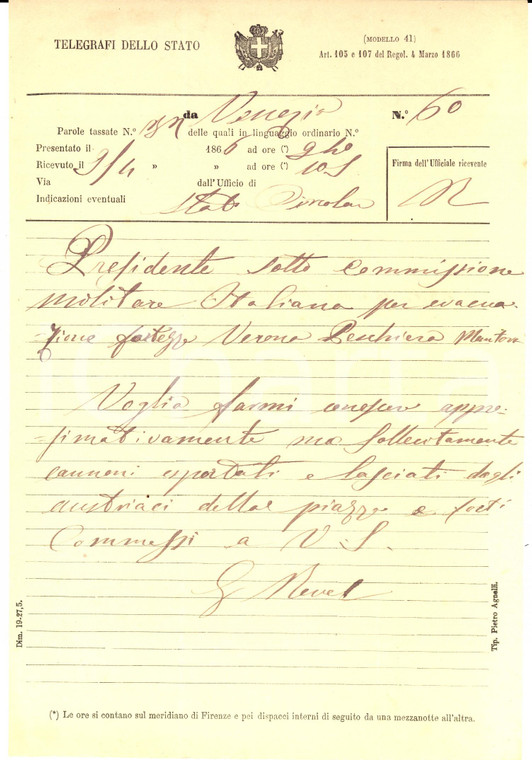 TELEGRAFI DELLO STATO
(MODELLO 41)
Art. 105 e 107 del Regol. 4 Marzo 1866
da Venezia
N.° 60
Parole tassate N.° delle quali in linguaggio ordinario N.°
Presentato il 1866 ad ore (*)
Ricevuto il 9/4 » » ad ore (*)
Via dall'Ufficio di
Indicazioni eventuali Stato Circolar
Firma dell'Ufficiale ricevente
R
Presidente sotto commissione
militare Italiana per evacua
zione fortezze Verona Peschiera Mantova
Voglia farmi conoscere appro
=simativamente ma sollecitamente
cannoni esportati e lasciati dagli
austriaci delle piazze e forti
Commessi a V. S.
G Revel
Dim. 19-27,5.
Tip. Pietro Agnelli.
(*) Le ore si contano sul meridiano di Firenze e pei dispacci interni di seguito da una mezzanotte all'altra.